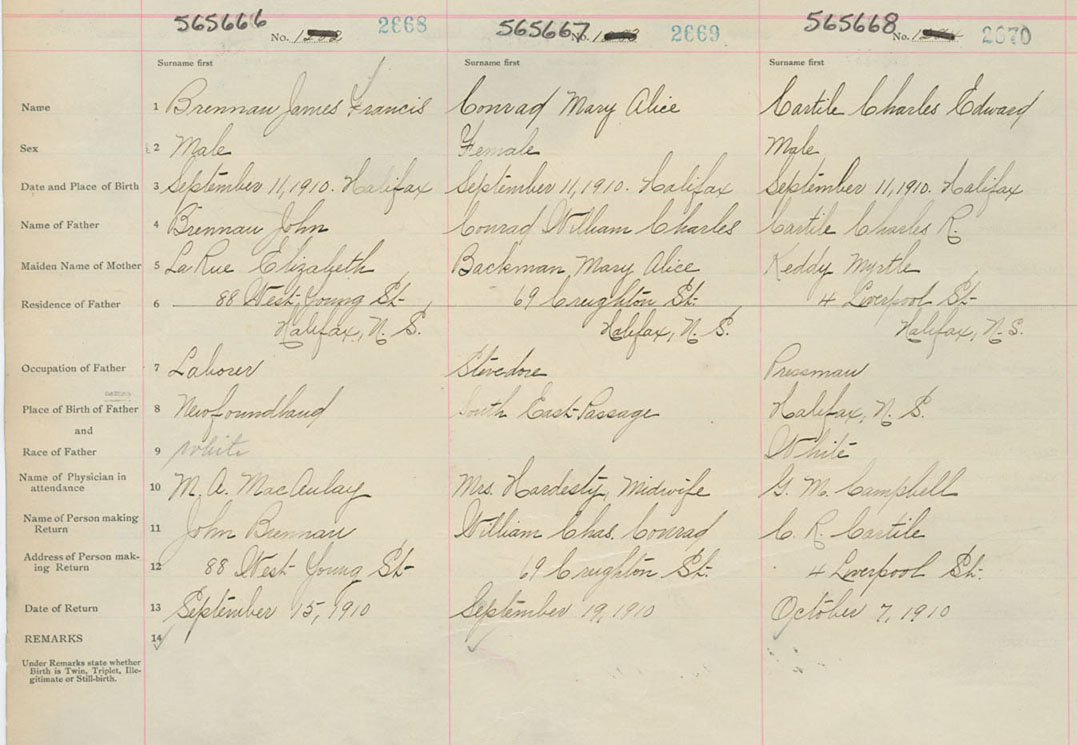 565666 No. 2668 565667 No. 2669 565668 No. 2670
Surname first Surname first Surname first
Name 1 Brennan James Francis Conrad Mary Alice Cartile Charles Edward
Sex 2 Male Female Male
Date and Place of Birth 3 September 11, 1910. Halifax September 11, 1910. Halifax September 11, 1910. Halifax
Name of Father 4 Brennan John Conrad William Charles Cartile Charles R.
Maiden Name of Mother 5 La Rue Elizabeth Backman, Mary Alice Keddy Myrtle
Residence of Father 6 88 West Young St. 69 Creighton St. 4 Liverpool St.
Halifax, N. S. Halifax, N. S. Halifax, N. S.
Occupation of Father 7 Laborer Stevedore Pressman
Place of Birth of Father 8 Newfoundland South East Passage Halifax, N. S.
and
Race of Father 9 White White
Name of Physician in
attendance 10 M. A. MacAulay Mrs. Hardesty, Midwife G. M. Campbell
Name of Person making
Return 11 John Brennan William Chas. Conrad C. R. Cartile
Address of Person mak-
ing Return 12 88 West Young St. 69 Creighton St. 4 Liverpool St.
Date of Return 13 September 15, 1910 September 19, 1910 October 7, 1910
REMARKS 14
Under Remarks state whether
Birth is Twin, Triplet, Ille-
gitimate or Still-birth.